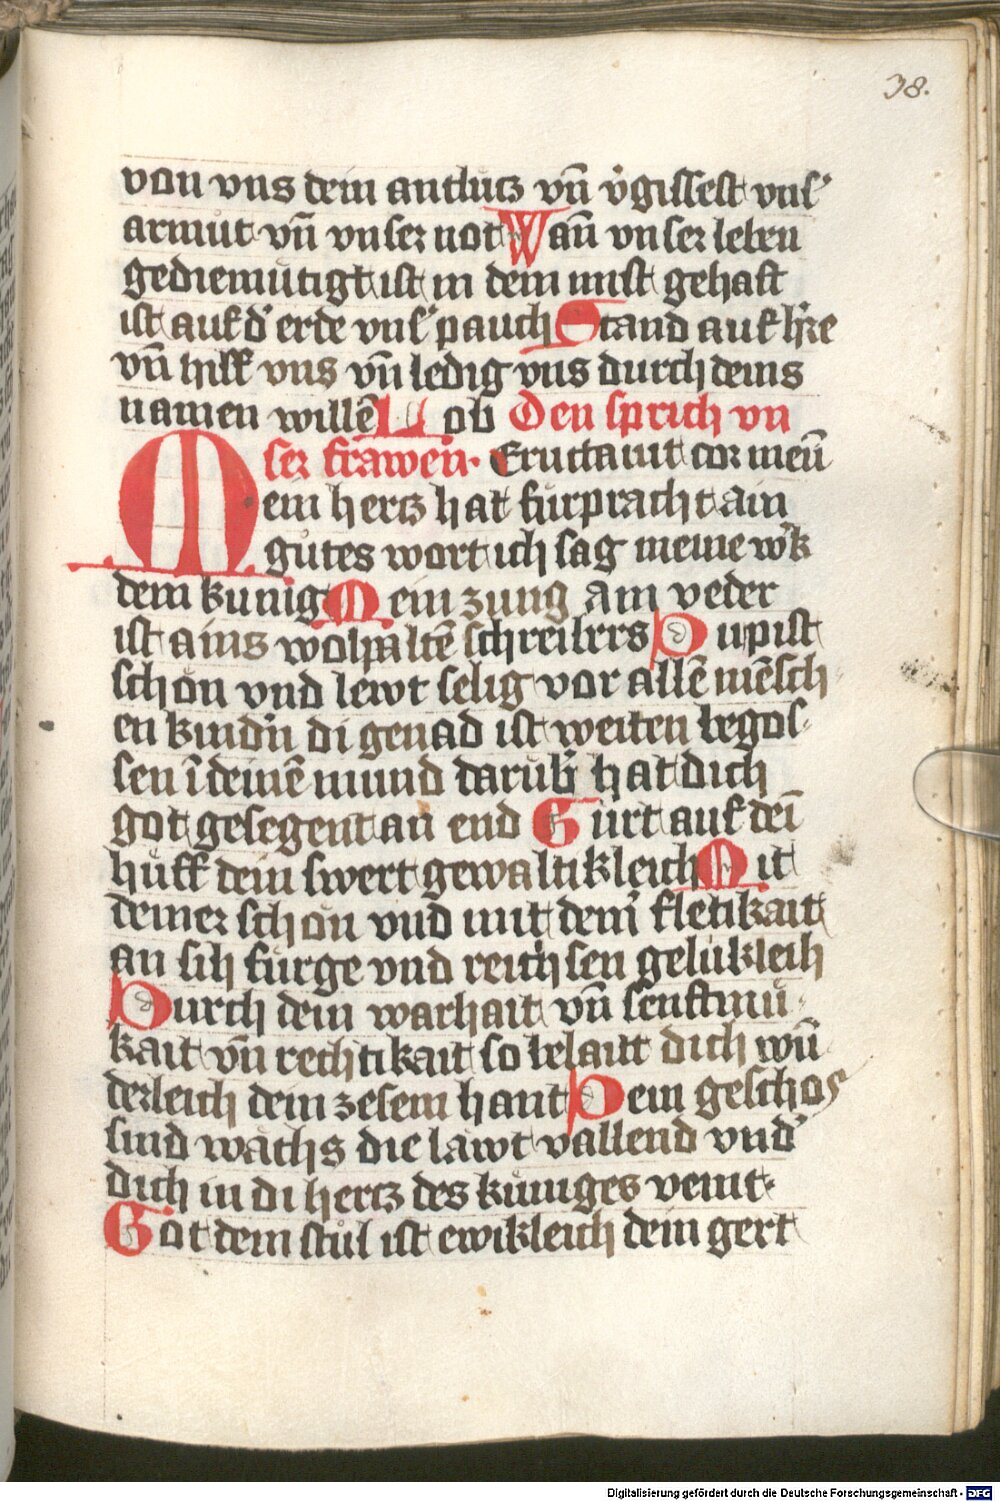 38.
von vns dein antlucz vn̄ v̓gissest vns̓
armut vn̄ vnser not Wan̄ vnser leben
gediemütigt ist in dem mist gehaft
ist auf d̓ erde vns̓ pauch Stand auf hr̓re
vn̄ hilff vns vn̄ ledig vns durch deins
namen willē Lob Den sprich vn
ser frawen. Eructauit cor meū
Mein hercz hat fürpracht ain
gůtes wort ich sag meine w̓k
dem kunig Mein zung Am veder
ist ains wolpaltē schreibers Du pist
schön vnd lewtselig vor allē mēsch
en kindn̓ di genad ist weiten begos
sen ī deinē mund darüb̓ hat dich
got gesegent an end Gürt auf deī
hüff dein swert gewaltikleich Mit
deiner schön vnd mit dein̓ fletikait
an sih fürge vnd reichsen gelükleih
Durch dein warhait vn̄ senftmü
kait vn̄ rechtikait so belaitt dich wū
derleich dein zesem hant Dein geschos
sind wächs die läwt vallend vnd̓
dich in di hercz des küniges veint
Got dein stůl ist ewikleich dein gert
Digitalisierung gefördert durch die Deutsche Forschungsgemeinschaft - DFG